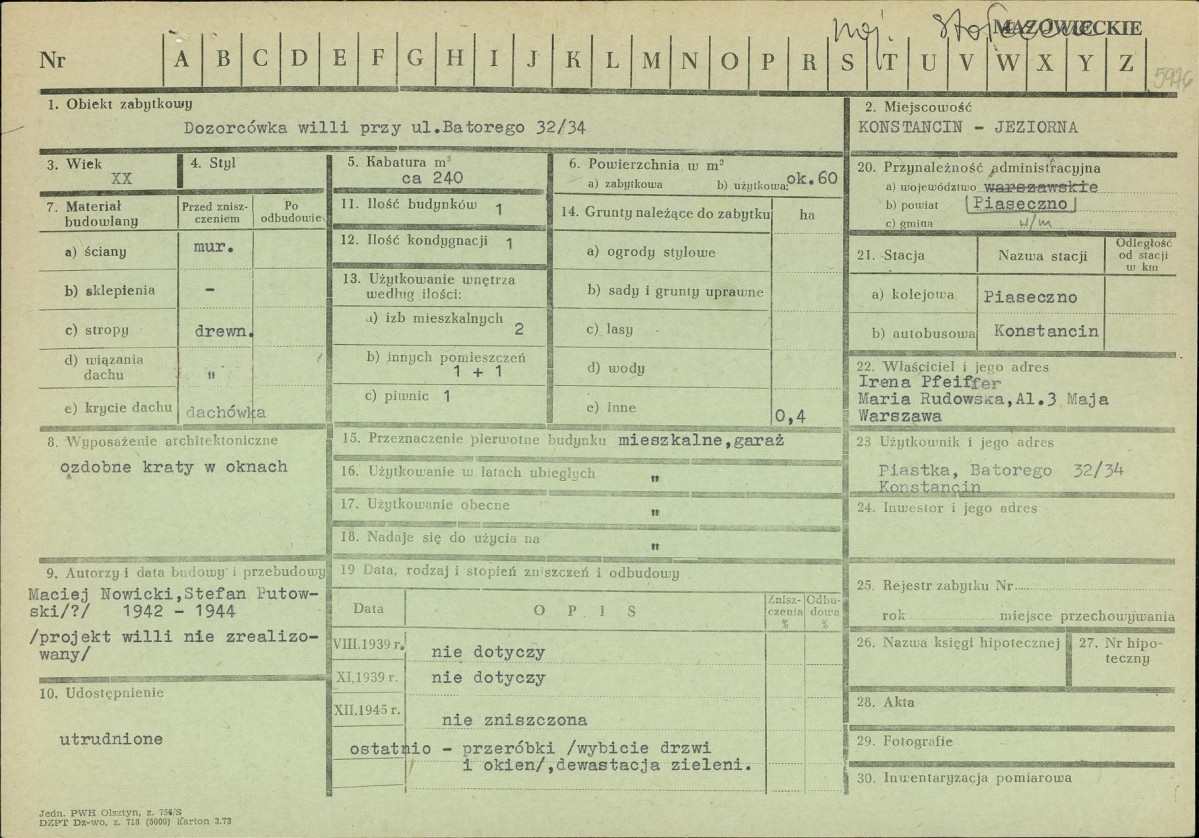 woj. stołeczne MAZOWIECKIE
Nr A B C D E F G H I J K L M N O P R S T U V W X Y Z
5976
1. Obiekt zabytkowy
Dozorcówka willi przy ul.Batorego 32/34
2. Miejscowość
KONSTANCIN - JEZIORNA
3. Wiek
XX
4. Styl
5. Kabatura m³
ca 240
6. Powierzchnia w m²
a) zabytkowa b) użytkowa: ok.60
20. Przynależność administracyjna
a) województwo warszawskie
b) powiat Piaseczno
c) gmina w/m
7. Materiał budowlany
Przed znisz-
czeniem
Po
odbudowie
a) ściany mur.
b) sklepienia -
c) stropy drewn.
d) wiązania
dachu "
e) krycie dachu dachówka
11. Ilość budynków 1
12. Ilość kondygnacji 1
13. Użytkowanie wnętrza
według ilości:
a) izb mieszkalnych 2
b) innych pomieszczeń
1 + 1
c) piwnic 1
14. Grunty należące do zabytku ha
a) ogrody stylowe
b) sady i grunty uprawne
c) lasy
d) wody
e) inne 0,4
21. Stacja Nazwa stacji
Odległość
od stacji
w km
a) kolejowa Piaseczno
b) autobusowa Konstancin
22. Właściciel i jego adres
Irena Pfeiffer
Maria Rudowska,Al.3 Maja
Warszawa
8. Wyposażenie architektoniczne
ozdobne kraty w oknach
15. Przeznaczenie pierwotne budynku mieszkalne,garaż
16. Użytkowanie w latach ubiegłych "
17. Użytkowanie obecne "
18. Nadaje się do użycia na "
23 Użytkownik i jego adres
Piastka, Batorego 32/34
Konstancin
24. Inwestor i jego adres
9. Autorzy i data budowy i przebudowy
Maciej Nowicki,Stefan Putow-
ski/?/ 1942 - 1944
/projekt willi nie zrealizo-
wany/
10. Udostępnienie
utrudnione
19 Data, rodzaj i stopień zniszczeń i odbudowy
Data O P I S
Znisz-
czenia
%
Odbu-
dowa
%
VIII.1939 r. nie dotyczy
XI,1939 r. nie dotyczy
XII.1945 r. nie zniszczona
ostatnio - przeróbki /wybicie drzwi
i okien/,dewastacja zieleni.
25. Rejestr zabytku Nr
rok miejsce przechowywania
26. Nazwa księgi hipotecznej
27. Nr hipo-
teczny
28. Akta
29. Fotografie
30. Inwentaryzacja pomiarowa
Jedn. PWH Olsztyn, z. 756/S
DZPT Dz-wo, z. 718 (5000) Karton 3.73